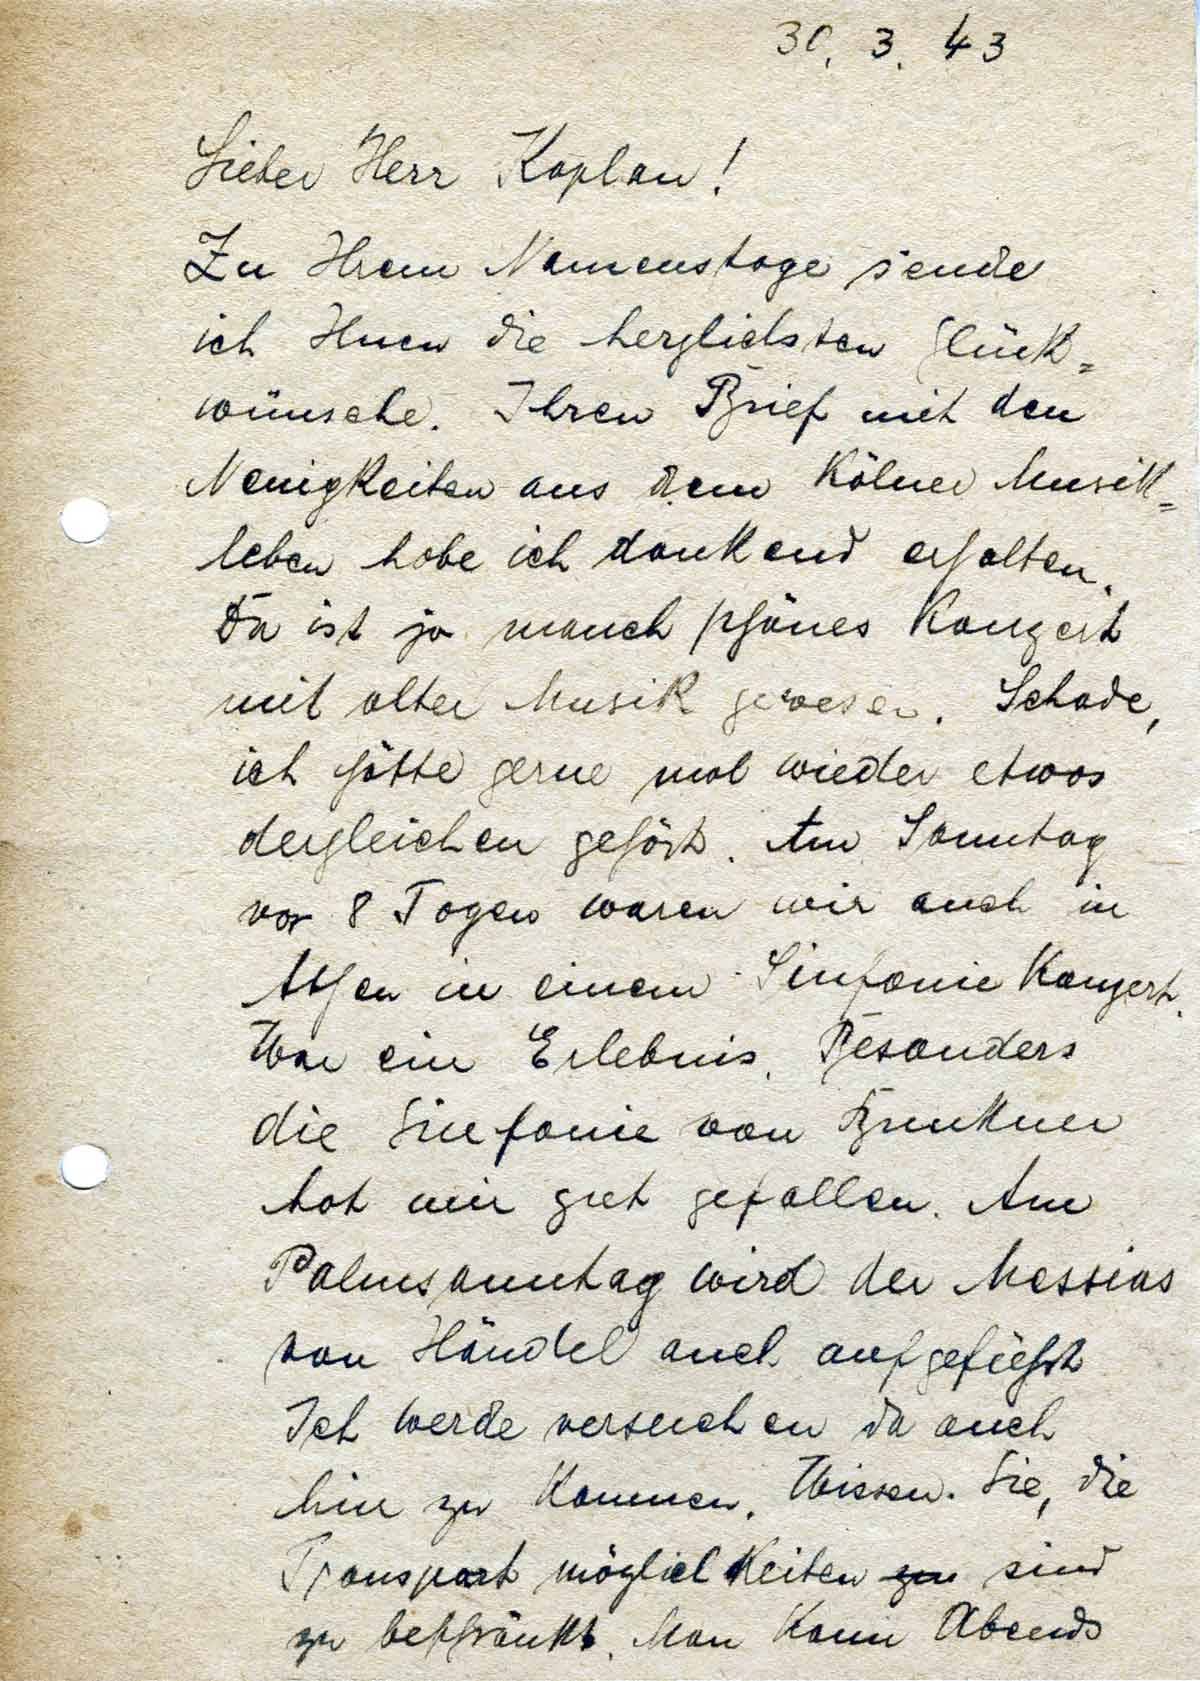 30. 3. 43
Lieber Herr Kaplan!
Zu Ihrem Namenstage sende
ich Ihnen die herzlichsten Glück=
wünsche. Ihren Brief mit den
Neuigkeiten aus dem Kölner Musik=
leben habe ich dankend erhalten.
Da ist ja manch schönes Konzert
mit alter Musik gewesen. Schade,
ich hätte gerne mal wieder etwas
dergleichen gehört. Am Sonntag
vor 8 Tagen waren wir auch in
Athen in einem Sinfonie Konzert.
War ein Erlebnis. Besonders
die Sinfonie von Brukner
hat mir gut gefallen. Am
Palmsonntag wird der Messias
von Händel auch aufgeführt
Ich werde versuchen da auch
hin zu kommen. Wissen Sie, die
Transport möglichkeiten zu sind
zu beschränkt. Man kann Abends